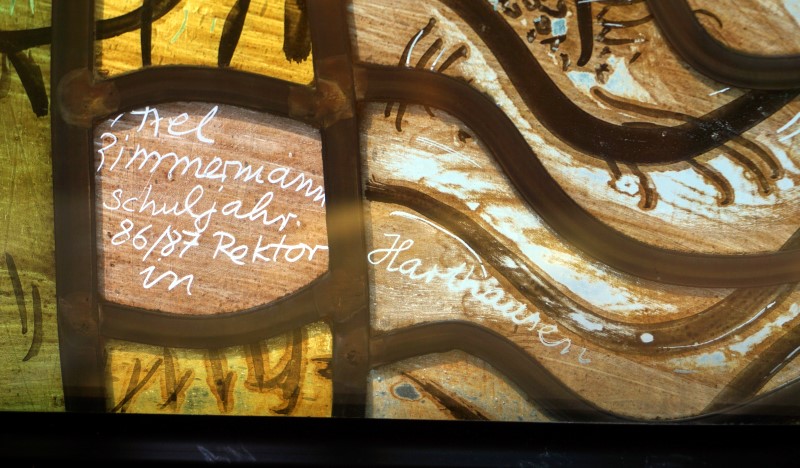 Axel
Zimmermann
schuljahr.
86/87 Rektor
in
Harthausen